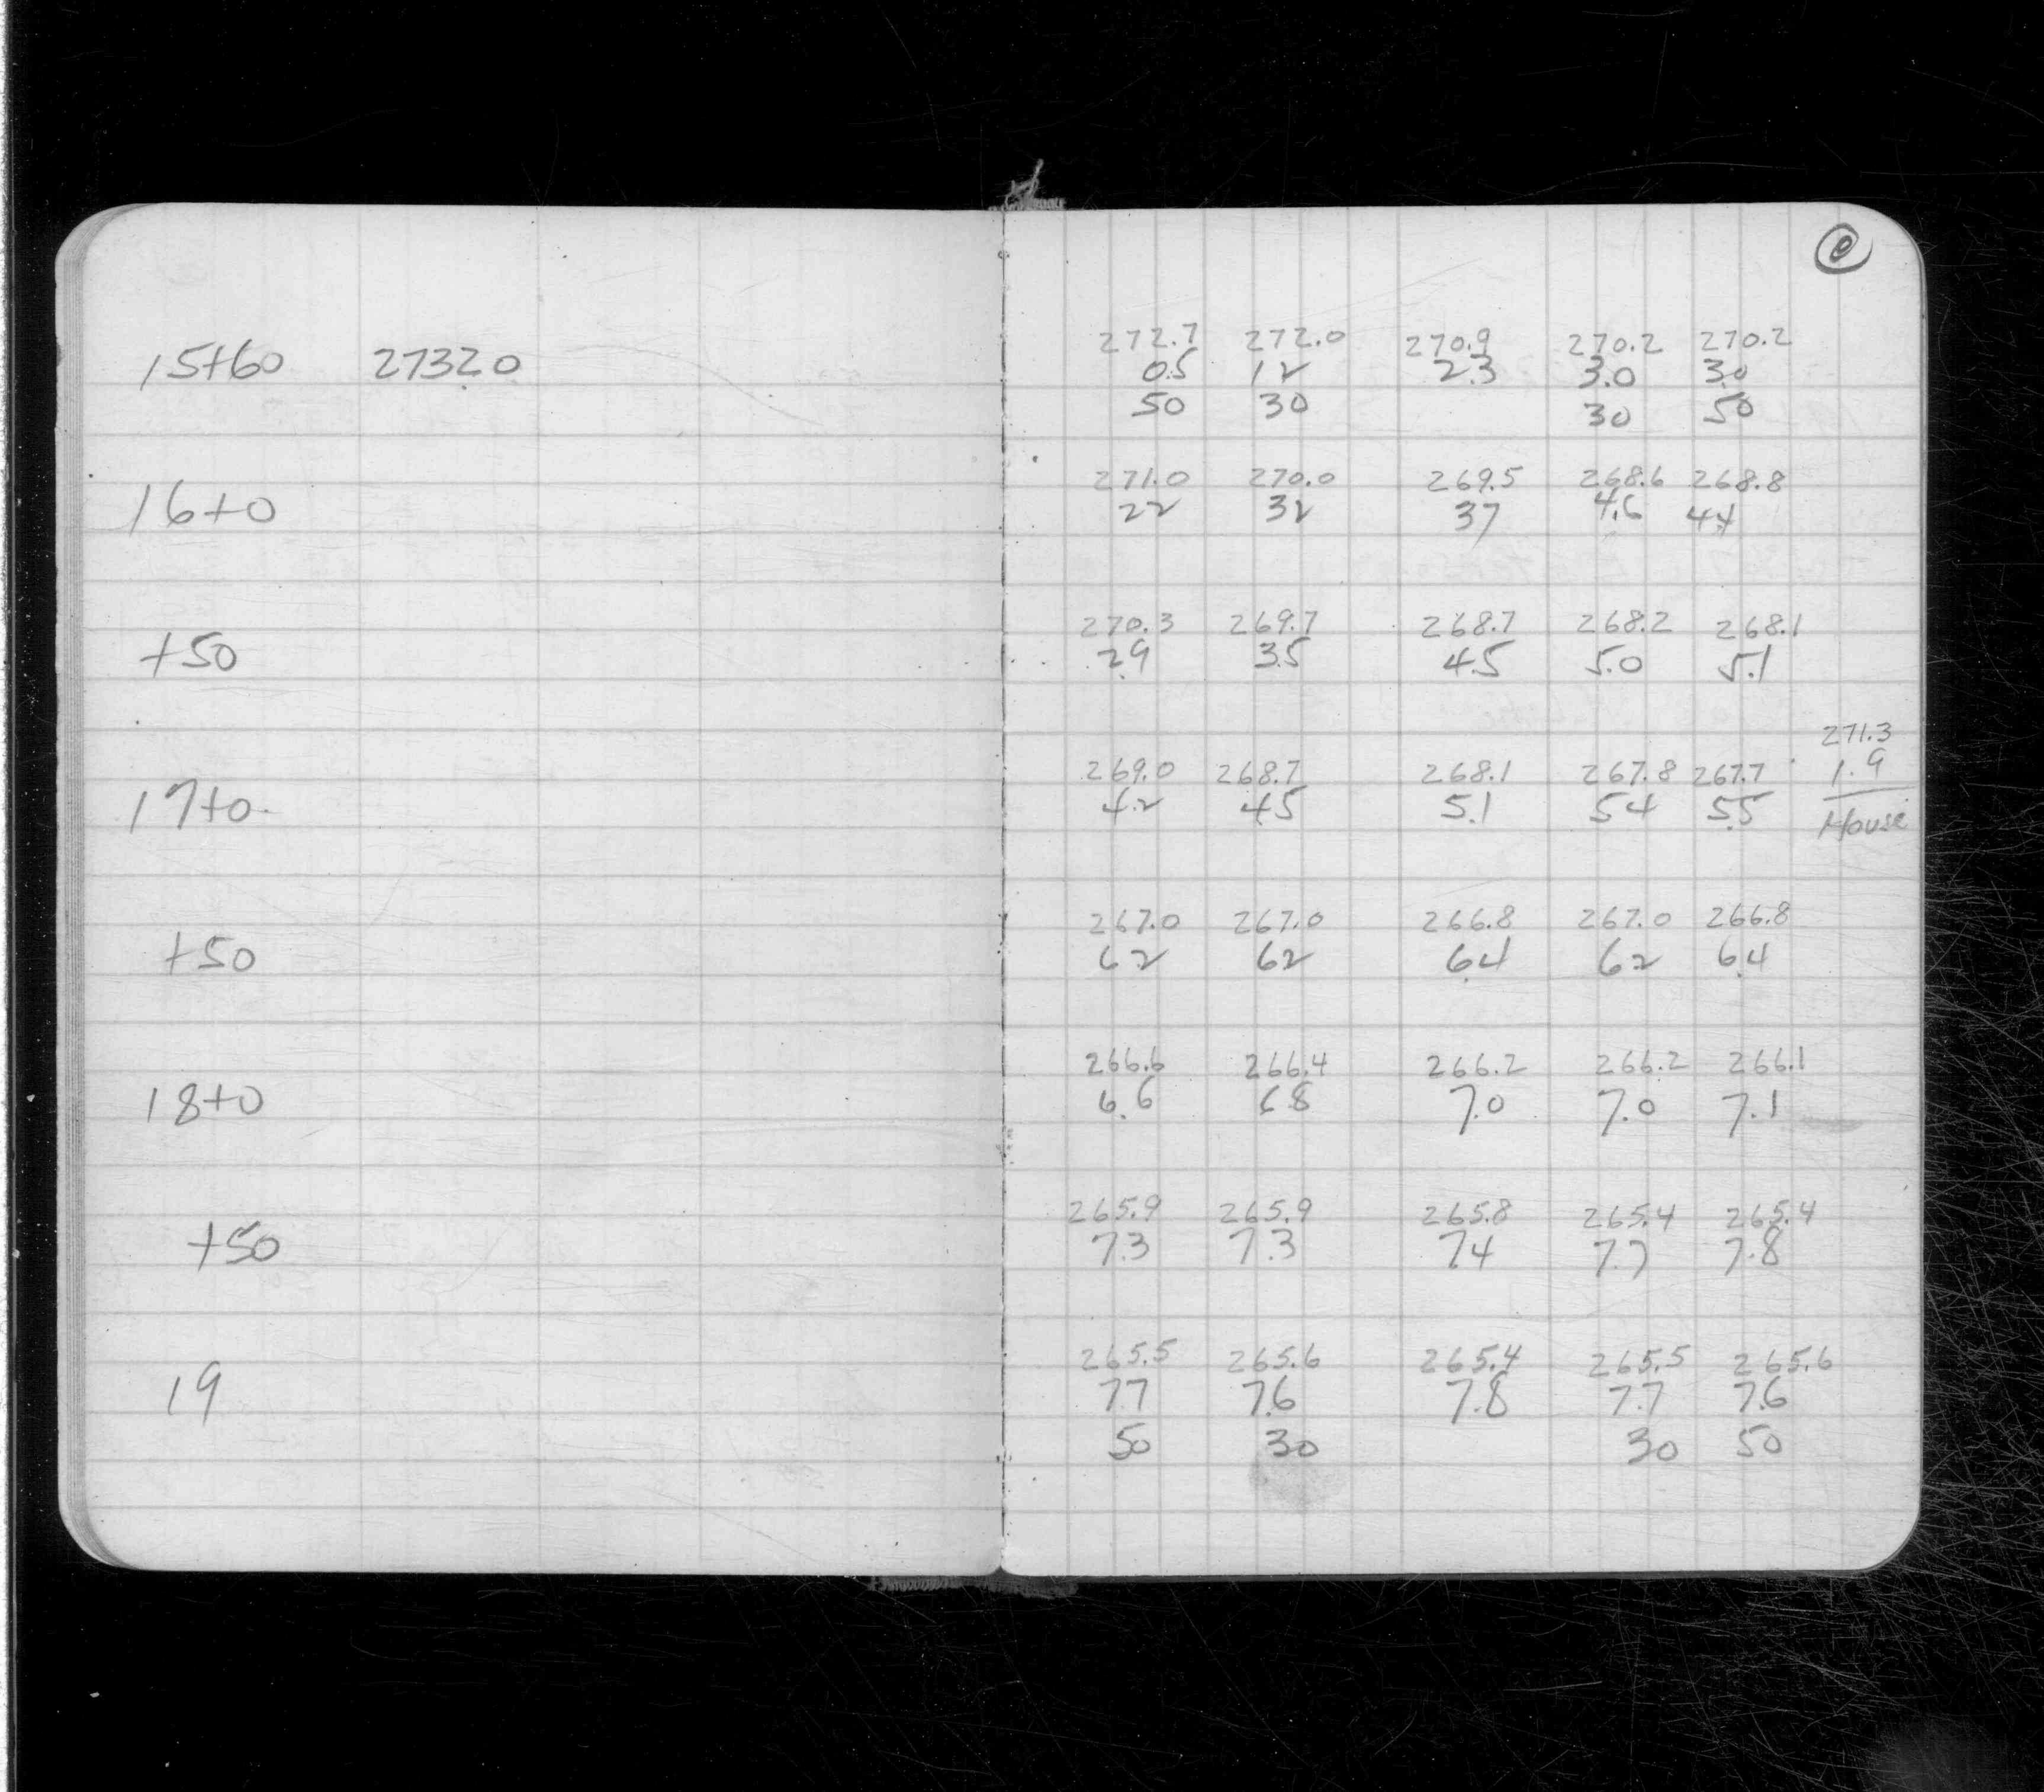 0
272.7 272.0 270.9 270.2 270.2
15+60 273.20 0.5 1.2 2.3 3.0 3.0
50 30 30 50
271.0 270.0 269.5 268.6 268.8
16+0 2.2 3.2 3.7 4.6 4.4
270.3 269.7 268.7 268.2 268.1
+50 2.9 3.5 4.5 5.0 5.1
271.3
269.0 268.7 268.1 267.8 267.7 1.9
17+0 4.2 4.5 5.1 5.4 5.5 House
267.0 267.0 266.8 267.0 266.8
+50 6.2 6.2 6.4 6.2 6.4
266.6 266.4 266.2 266.2 266.1
18+0 6.6 6.8 7.0 7.0 7.1
265.9 265.9 265.8 265.4 265.4
+50 7.3 7.3 7.4 7.7 7.8
265.5 265.6 265.4 265.5 265.6
19 7.7 7.6 7.8 7.7 7.6
50 30 30 50